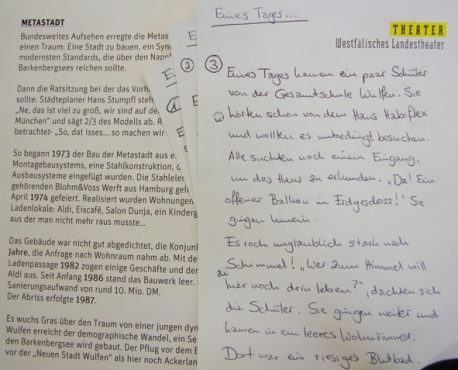 METASTADT
Bundesweites Aufsehen erregte die Metas
einen Traum: Eine Stadt zu bauen, ein Syn
modernsten Standards, die über den Napo
Barkenbergsees reichen sollte.
Dann die Ratsitzung bei der das Vor
sollte: Städteplaner Hans Stumpfl steh
„Ne, das ist viel zu groß, wir sind auf de
München“ und sägt 2/3 des Modells ab. R
betrachtet- „So, dat isses... so machen wir
So begann 1973 der Bau der Metastadt aus e
Montagebausystems, eine Stahlkonstruktion, d
Ausbausysteme eingefügt wurden. Die Stahlele
gehörenden Blohm&Voss Werft aus Hamburg geli
April 1974 gefeiert. Realisiert wurden Wohnungen
Ladenlokale: Aldi, Eiscafé, Salon Dunja, ein Kinderg
aus der man nicht mehr raus musste...
Das Gebäude war nicht gut abgedichtet, die Konjunk
Jahre, die Anfrage nach Wohnraum nahm ab. Mit de
Ladenpassage 1982 zogen einige Geschäfte und der
Aldi aus. Seit Anfang 1986 stand das Bauwerk leer.
Sanierungsaufwand von rund 10. Mio. DM.
Der Abriss erfolgte 1987.
Es wuchs Gras über den Traum von einer jungen dyn
Wulfen erreicht der demographische Wandel, ein Se
den Barkenbergsee wird gebaut. Der Pflug vor dem E
vor der „Neuen Stadt Wulfen“ als hier noch Ackerlan
2
Eines Tages...
THEATER
Westfälisches Landestheater
3 Eines Tages kamen ein paar Schüler
von der Gesamtschule Wulfen. Sie
hörten schon von dem Haus Habiflex
und wollten es unbedingt besuchen.
Alle suchten nach einem Eingang,
um das Haus zu erkunden. „Da! Ein
offener Balkon im Erdgeschoss!“ Sie
gingen hinein.
Es roch unglaublich stark nach
Schimmel! „Wer zum Himmel will
hier noch drin leben?“, dachten sich
die Schüler. Sie gingen weiter und
kamen in ein leeres Wohnzimmer.
Dort war ein riesiges Blutbad.